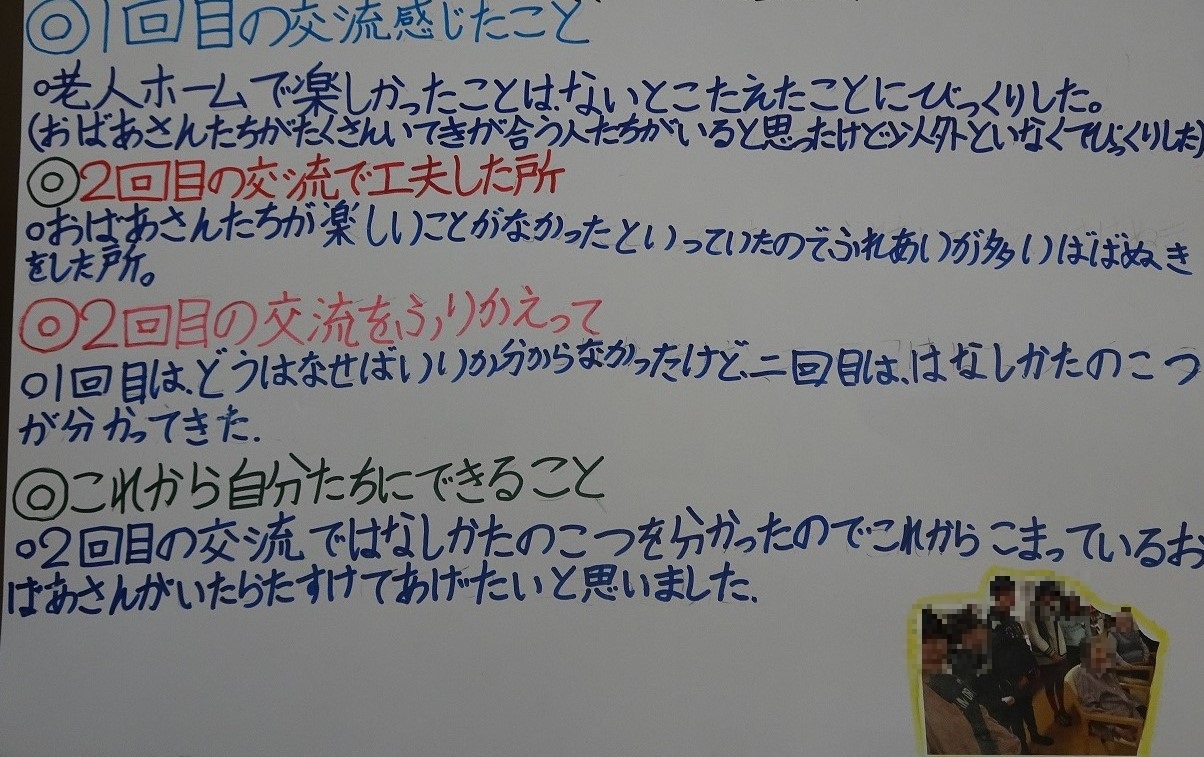 ◎1回目の交流感じたこと
○老人ホームで楽しかったことは、ないとこたえたことにびっくりした。
(おばあさんたちがたくさんいてきが合う人たちがいると思ったけど以外といなくてびっくりした)
◎2回目の交流で工夫した所
○おばあさんたちが楽しいことがなかったといっていたのでふれあいが多いばばぬき
をした所。
◎2回目の交流をふりかえって
○1回目は、どうはなせばいいか分からなかったけど、二回目は、はなしかたのこつ
が分かってきた.
◎これから自分たちにできること
○2回目の交流ではなしかたのこつを分かったのでこれからこまっているお
ばあさんがいたらたすけてあげたいと思いました.